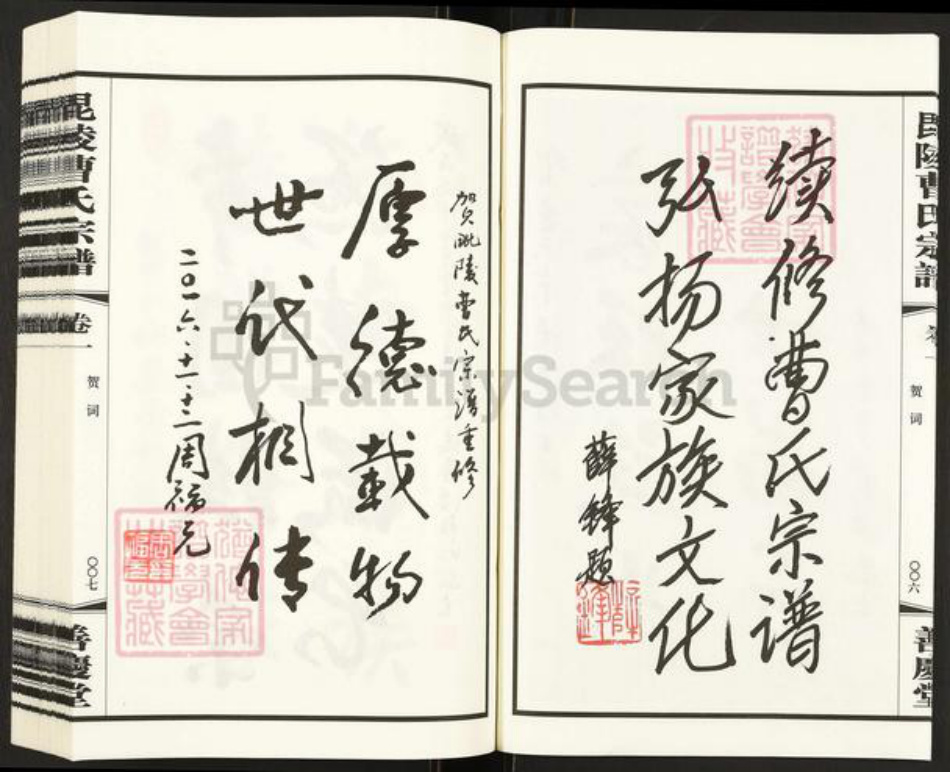 毘陵曹氏宗譜
卷一
贺词
〇〇六
善慶堂
续修曹氏宗谱
弘扬家族文化
薛锋题
贺毗陵曹氏宗谱重修
厚德载物
世代相传
二〇一六·十一·十二周福元
毘陵曹氏宗譜
卷一
贺词
〇〇七
善慶堂
FamilySearch